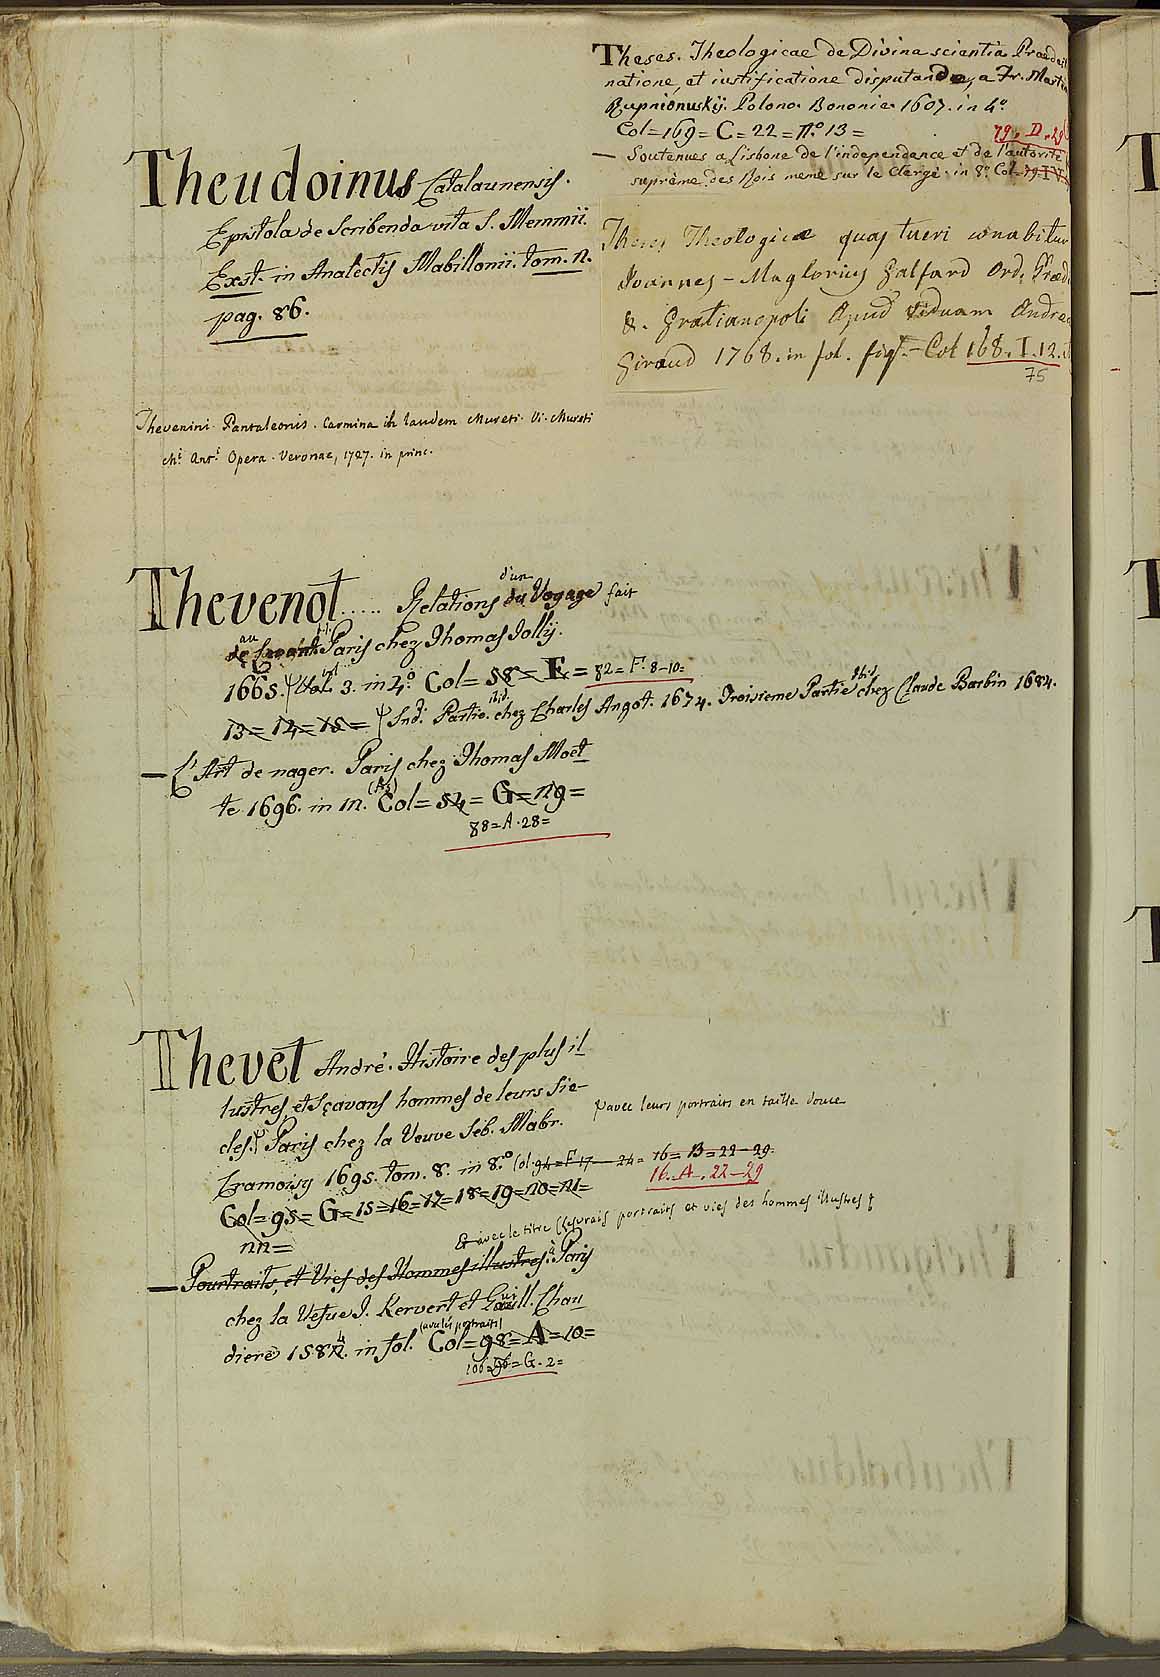 Theses Theologicae de Divina scientia Praedesti
natione, et iustificatione disputandae, a Fr. Martin
Rupnionuskij. Polono. Bononiae 1607. in 4.o
Col=169=C=22=N.o 13=
79. D. 29
— Soutenues a Lisbone de l'independance et de l'autorité
suprème des Rois meme sur le Clergé. in 8.o Col.
Theses Theologicæ quas tueri conabitur
Joannes-Maglorius Galfard Ord. Præd.
&. Gratianopoli Apud viduam Andreæ
Giroud 1768. in fol. fig. - Col 168. I. 12.
75
Theudoinus Catalaunensis.
Epistola de scribenda vita S. Memmii.
Exst. in Analectis Mabillonii. tom. 2.
pag. 86.
Thevenini Pantaleonis. Carmina in laudem Mureti. Vi. Mureti
M. Ant. Opera. Veronae, 1727. in princ.
Thevenot..... Relations du d'un Voyage fait
de au Levant. Paris chez Thomas Jolly.
1665. Vol. 3. in 4.o Col=58=E=82=F. 8-10=
13=14=15= Snd. Partie. ibid. chez Charles Angot. 1674. Troisieme Partie ibid. chez Claude Barbin 1684.
— L'Art de nager. Paris chez Thomas Moet
te 1696. in 12. Col=54=G=29=
88=A.28=
Thevet André. Histoire des plus il
lustres, et sçavans hommes de leurs sie-
cles. Paris chez la Veuve Seb. Mabr.
avec leurs portraits en taille douce
Cramoisy 1695. tom. 8. in 8.o Col.94=F.17-24= 16=B=22-29.
16. A. 22-29
Col=95=G=15=16=17=18=19=20=21=
22=
& avec le titre les vrais portraits et vies des hommes illustres
— Pourtraits, et Vies des Hommes illustres. à Paris
chez la Vefue J. Kervert et Guill. Chau
diere 1584. in fol. (avec les portraits) Col=98=A=10=
106=G.2=